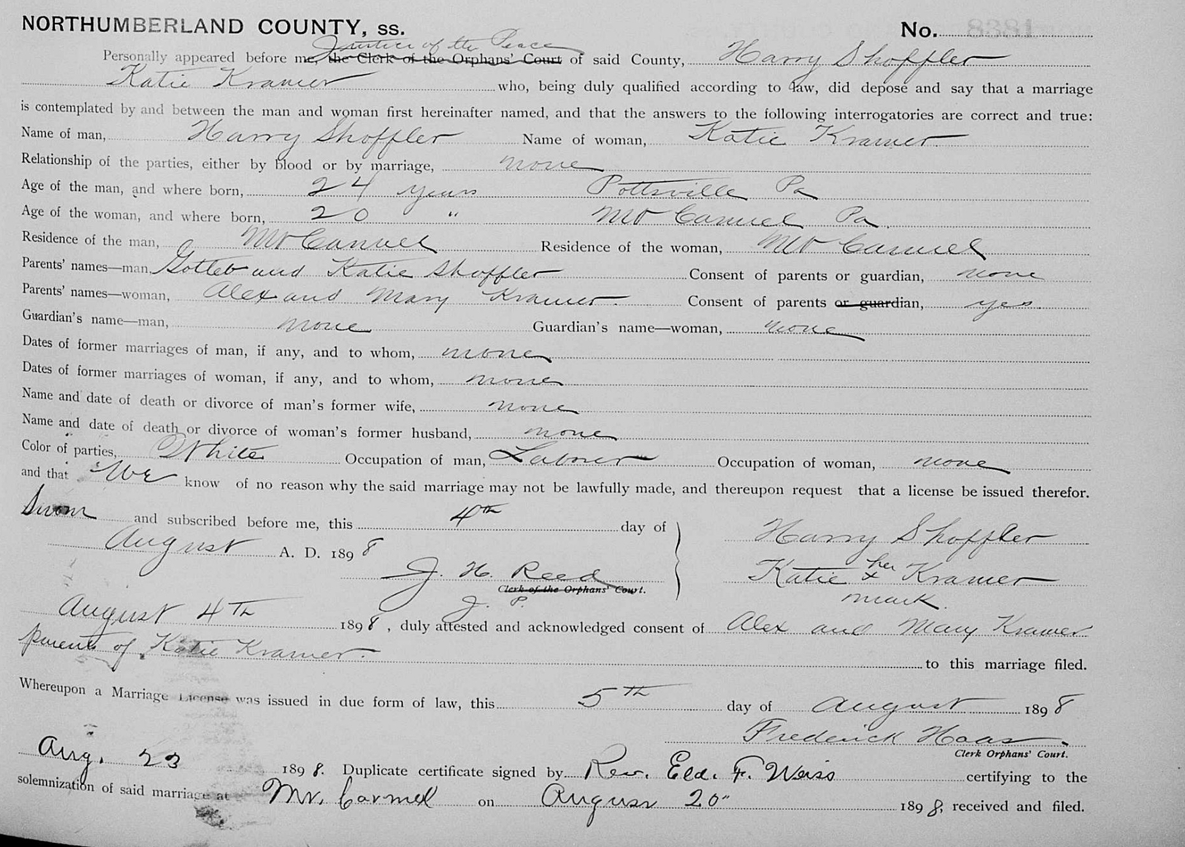 NORTHUMBERLAND COUNTY, ss. No. 8381
Justice of the Peace
Personally appeared before me, the Clerk of the Orphans' Court of said County, Harry Shoffler
Katie Kramer who, being duly qualified according to law, did depose and say that a marriage
is contemplated by and between the man and woman first hereinafter named, and that the answers to the following interrogatories are correct and true:
Name of man, Harry Shoffler Name of woman, Katie Kramer
Relationship of the parties, either by blood or by marriage, none
Age of the man, and where born, 24 years Pottsville Pa
Age of the woman, and where born, 20 " Mt Carmel Pa.
Residence of the man, Mt Carmel Residence of the woman, Mt Carmel
Parents' names—man, Gotleb and Katie Shoffler Consent of parents or guardian, none
Parents' names—woman, Alex and Mary Kramer. Consent of parents or guardian, yes
Guardian's name—man, none Guardian's name—woman, none
Dates of former marriages of man, if any, and to whom, none
Dates of former marriages of woman, if any, and to whom, none
Name and date of death or divorce of man's former wife, none
Name and date of death or divorce of woman's former husband, none
Color of parties, White Occupation of man, Laborer Occupation of woman, none
and that We know of no reason why the said marriage may not be lawfully made, and thereupon request that a license be issued therefor.
Sworn and subscribed before me, this 4th day of
August A. D. 1898
Harry Shoffler
J. H. Reed
Katie her x Kramer
mark.
Clerk of the Orphans' Court.
J. P.
August 4th 1898, duly attested and acknowledged consent of Alex and Mary Kramer
parents of Katie Kramer. to this marriage filed.
Whereupon a Marriage License was issued in due form of law, this 5th day of August 1898
Frederick Haas.
Clerk Orphans' Court.
Aug. 23 1898. Duplicate certificate signed by Rev. Eld. F. Weiss certifying to the
solemnization of said marriage at Mt. Carmel on August 20" 1898, received and filed.